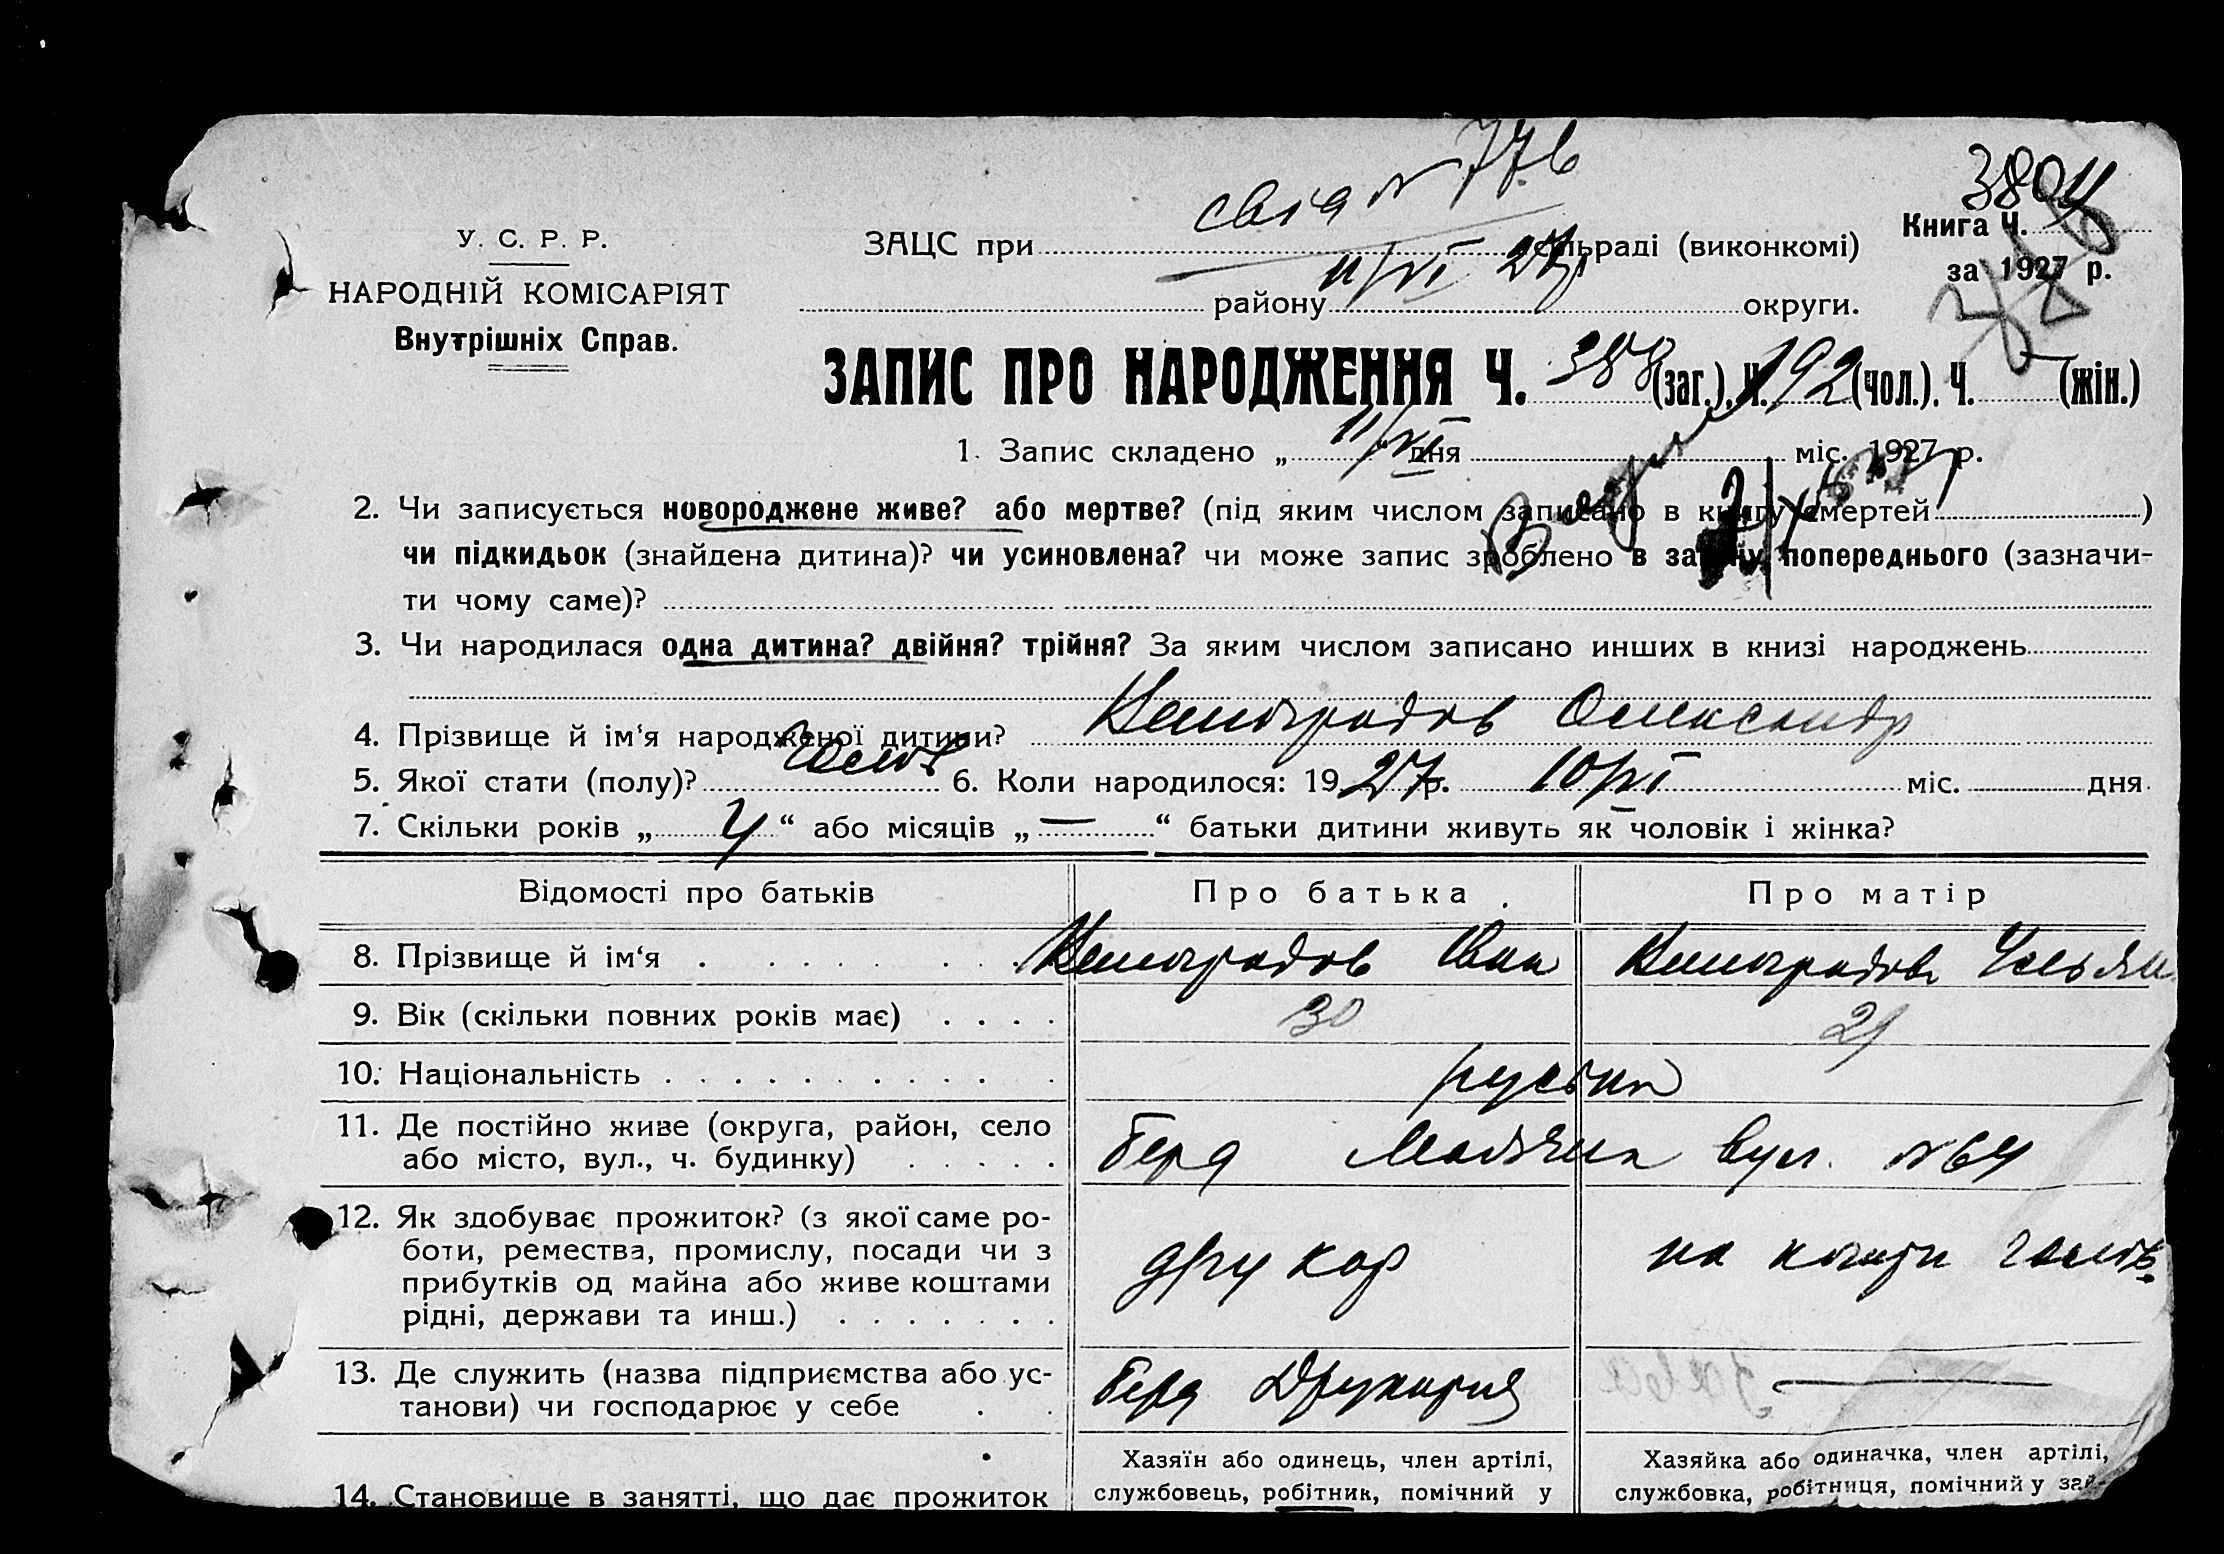 776
3804
У. С. Р. Р.
ЗАЦС при сільраді (виконкомі)
Книга Ч.
НАРОДНІЙ КОМІСАРІЯТ
11/XI 27р
за 1927 р.
району округи.
Внутрішніх Справ.
ЗАПИС ПРО НАРОДЖЕННЯ Ч. 388 (заг.). Ч. 192 (чол.). Ч. — (жін.)
1. Запис складено „ 11/XI “ дня міс. 1927 р.
2. Чи записується новороджене живе? або мертве? (під яким числом записано в книгу смертей )
чи підкидьок (знайдена дитина)? чи усиновлена? чи може запис зроблено в заміну попереднього (зазначи-
ти чому саме)?
3. Чи народилася одна дитина? двійня? трійня? За яким числом записано инших в книзі народжень
4. Прізвище й ім‘я народженої дитини? Виноградов Олександр
5. Якої стати (полу)? чолов 6. Коли народилося: 1927 р. 10/XI міс. дня
7. Скільки років „ 4 “ або місяців „ — “ батьки дитини живуть як чоловік і жінка?
Відомості про батьків Про батька Про матір
8. Прізвище й ім‘я Виноградов Іван Виноградова Ульян
9. Вік (скільки повних років має) 30
10. Національність
11. Де постійно живе (округа, район, село Берд вул. №64
або місто, вул., ч. будинку)
12. Як здобуває прожиток? (з якої саме ро-
боти, ремества, промислу, посади чи з друкар на кошти чолов.
прибутків од майна або живе коштами
рідні, держави та инш.)
13. Де служить (назва підприємства або ус- Берд Друкарня —
танови) чи господарює у себе
Хазяїн або одинець, член артілі, Хазяйка або одиначка, член артілі,
14. Становище в занятті, що дає прожиток службовець, робітник, помічний у службовка, робітниця, помічний у зай-